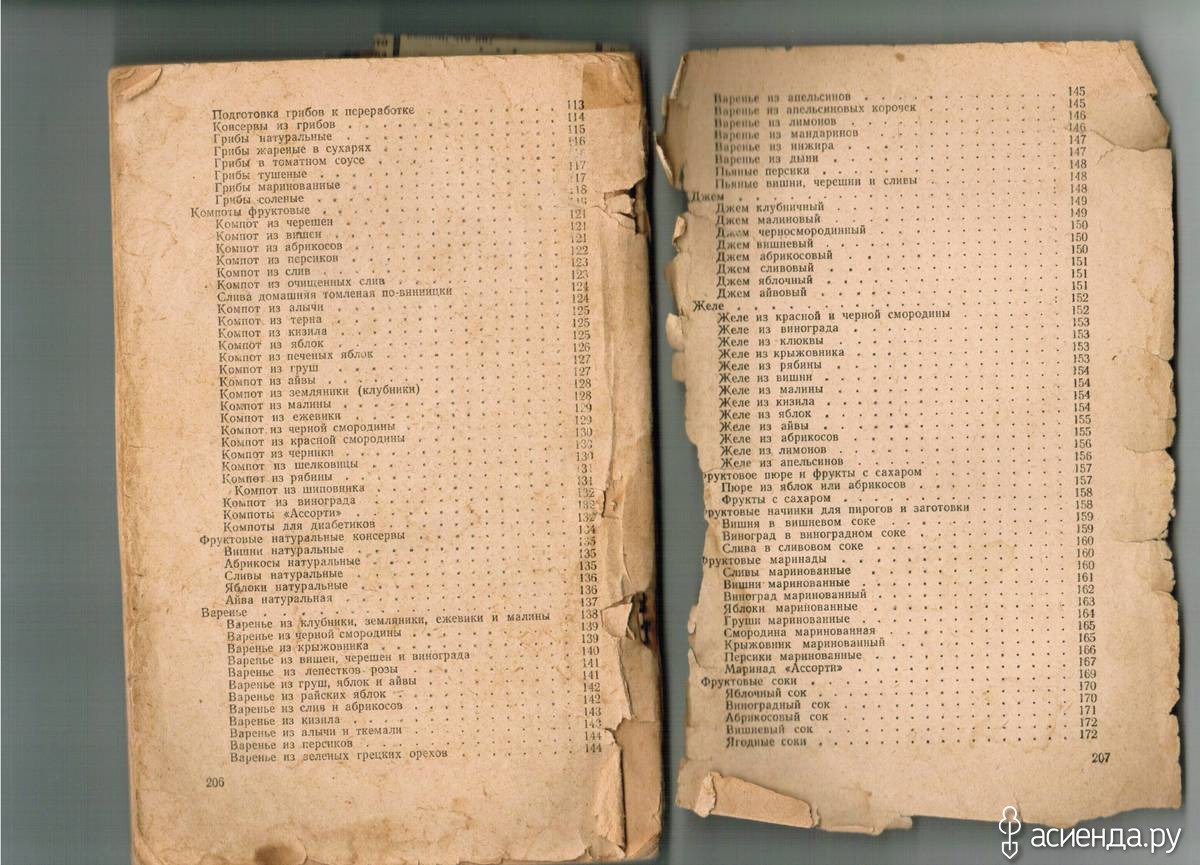 Подготовка грибов к переработке 113
Консервы из грибов 114
Грибы натуральные 115
Грибы жареные в сухарях
Грибы в томатном соусе
Грибы тушеные 117
Грибы маринованные
Грибы соленые
Компоты фруктовые 121
Компот из черешен 121
Компот из вишен 121
Компот из абрикосов 122
Компот из персиков 123
Компот из слив 123
Компот из очищенных слив 124
Слива домашняя томленая по-винницки 124
Компот из алычи 125
Компот из терна 125
Компот из кизила 125
Компот из яблок 126
Компот из печеных яблок 127
Компот из груш 127
Компот из айвы 128
Компот из земляники (клубники) 128
Компот из малины 129
Компот из ежевики 129
Компот из черной смородины 130
Компот из красной смородины 130
Компот из черники 130
Компот из шелковицы 131
Компот из рябины 131
Компот из шиповника 132
Компот из винограда 132
Компоты «Ассорти» 132
Компоты для диабетиков 134
Фруктовые натуральные консервы 135
Вишни натуральные 135
Абрикосы натуральные 135
Сливы натуральные 136
Яблоки натуральные 136
Айва натуральная 137
Варенье 138
Варенье из клубники, земляники, ежевики и малины 139
Варенье из черной смородины 139
Варенье из крыжовника 140
Варенье из вишен, черешен и винограда 141
Варенье из лепестков розы 141
Варенье из груш, яблок и айвы 142
Варенье из райских яблок 142
Варенье из слив и абрикосов 143
Варенье из кизила 143
Варенье из алычи и ткемали 144
Варенье из персиков 144
Варенье из зеленых грецких орехов
206
Варенье из апельсинов 145
Варенье из апельсиновых корочек 145
Варенье из лимонов 146
Варенье из мандаринов 146
Варенье из инжира 147
Варенье из дыни 147
Пьяные персики 148
Пьяные вишни, черешни и сливы 148
Джем 148
Джем клубничный 149
Джем малиновый 149
Джем черносмородинный 150
Джем вишневый 150
Джем абрикосовый 150
Джем сливовый 151
Джем яблочный 151
Джем айвовый 151
Желе 152
Желе из красной и черной смородины 152
Желе из винограда 153
Желе из клюквы 153
Желе из крыжовника 153
Желе из рябины 153
Желе из вишни 154
Желе из малины 154
Желе из кизила 154
Желе из яблок 154
Желе из айвы 155
Желе из абрикосов 155
Желе из лимонов 156
Желе из апельсинов 156
Фруктовое пюре и фрукты с сахаром 157
Пюре из яблок или абрикосов 157
Фрукты с сахаром 158
Фруктовые начинки для пирогов и заготовки 158
Вишня в вишневом соке 159
Виноград в виноградном соке 159
Слива в сливовом соке 160
Фруктовые маринады 160
Сливы маринованные 160
Вишни маринованные 161
Виноград маринованный 162
Яблоки маринованные 163
Груши маринованные 164
Смородина маринованная 165
Крыжовник маринованный 165
Персики маринованные 166
Маринад «Ассорти» 167
Фруктовые соки 169
Яблочный сок 170
Виноградный сок 170
Абрикосовый сок 171
Вишневый сок 172
Ягодные соки 172
207
асиенда.ру